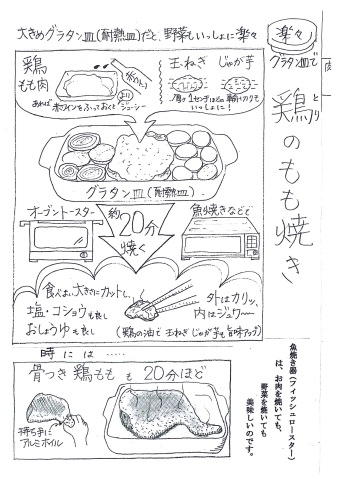 大きめグラタン皿(耐熱皿)だと、野菜もいっしょに楽々
楽々
グラタン皿で
肉
鶏のもも焼き
とり
鶏
もも肉
赤ワイン
あれば赤ワインをふっておくと
よりジューシー
玉ねぎ じゃが芋
厚さ1センチほどの輪切りで
いっしょに!
グラタン皿(耐熱皿)
オーブントースター
約20分
焼く
魚焼きなどで
食べよい大きさにカットし、
塩・コショウも良し
おしょうゆも良し
外はカリッ、
内はジュワ〜
(鶏の油で玉ねぎじゃが芋も旨味アップ)
時には……
骨つき鶏ももも20分ほど
持ち手に
アルミホイル
魚焼き器(フィッシュロースター)
は、お肉を焼いても、
野菜を焼いても
美味しいのです。